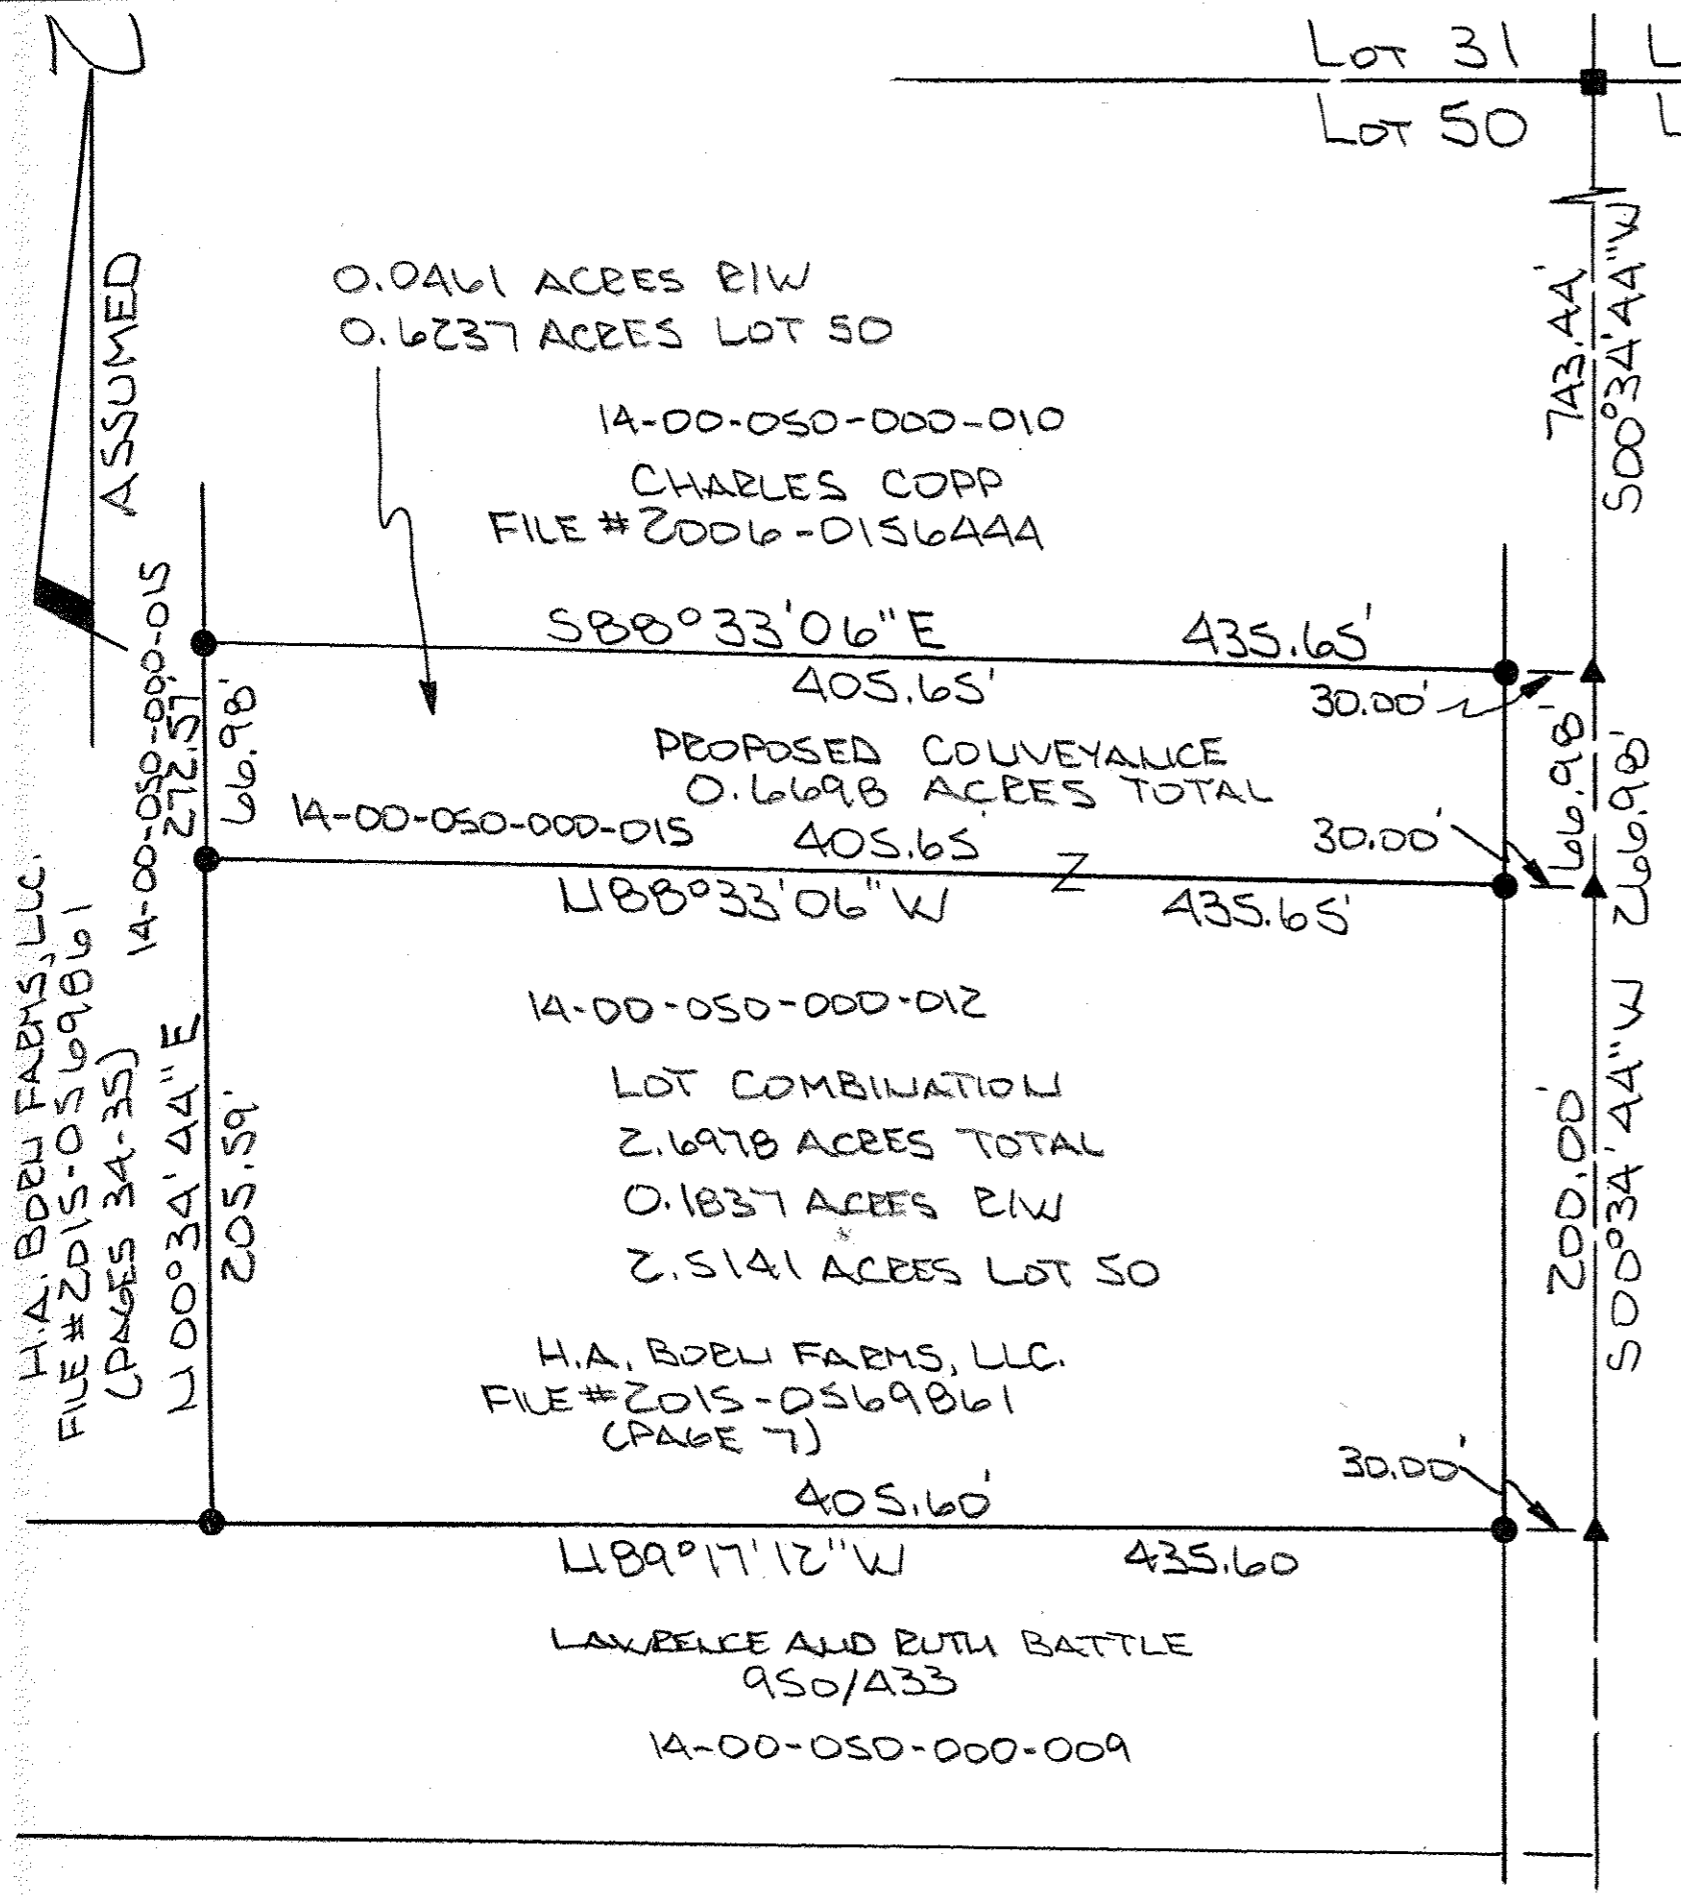 N
LOT 31
L
LOT 50
L
ASSUMED
743.44'
S00°34'44"W
0.0461 ACRES R/W
0.6237 ACRES LOT 50
14-00-050-000-010
CHARLES COPP
FILE #2006-0156444
S88°33'06"E 435.65'
405.65'
30.00'
14-00-050-000-015
272.57'
66.98'
PROPOSED CONVEYANCE
0.6698 ACRES TOTAL
14-00-050-000-015
405.65'
30.00'
66.98'
266.98'
N88°33'06"W 435.65'
H.A. BORN FARMS, LLC.
FILE #2015-0569861
(PAGES 34-35)
N00°34'44"E
205.59'
14-00-050-000-012
LOT COMBINATION
2.6978 ACRES TOTAL
0.1837 ACRES R/W
2.5141 ACRES LOT 50
H.A. BORN FARMS, LLC.
FILE #2015-0569861
(PAGE 7)
200.00'
S00°34'44"W
405.60'
30.00'
N89°17'12"W 435.60
LAWRENCE AND RUTH BATTLE
950/433
14-00-050-000-009